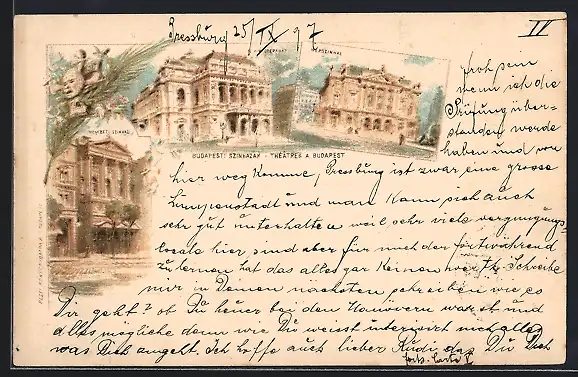 Pressburg 25/IX 97
IV
OPERAHAZ
NÉPSZINHAZ
NEMZETI SZINHAZ
BUDAPESTI SZINHÁZAK - THÉÂTRES A BUDAPEST
froh sein
wenn ich die
Prüfung über-
standen werde
haben und von
hier weg komme, Pressburg ist zwar eine grosse
Lumpenstadt und man kann sich auch
sehr gut unterhalten weil sehr viele vergnügungs
locale hier sind aber für mich der fortwährend
zu lernen hat das alles gar keinen Schreibe
mir in Deinem nächsten Schreiben wie es
Dir geht? ob Du heuer bei den Manövern warst und
alles mögliche denn wie Du weisst interessirt mich alles
was Dich angeht. Ich hoffe auch lieber Rudi das Du Dich
forts. Karte V